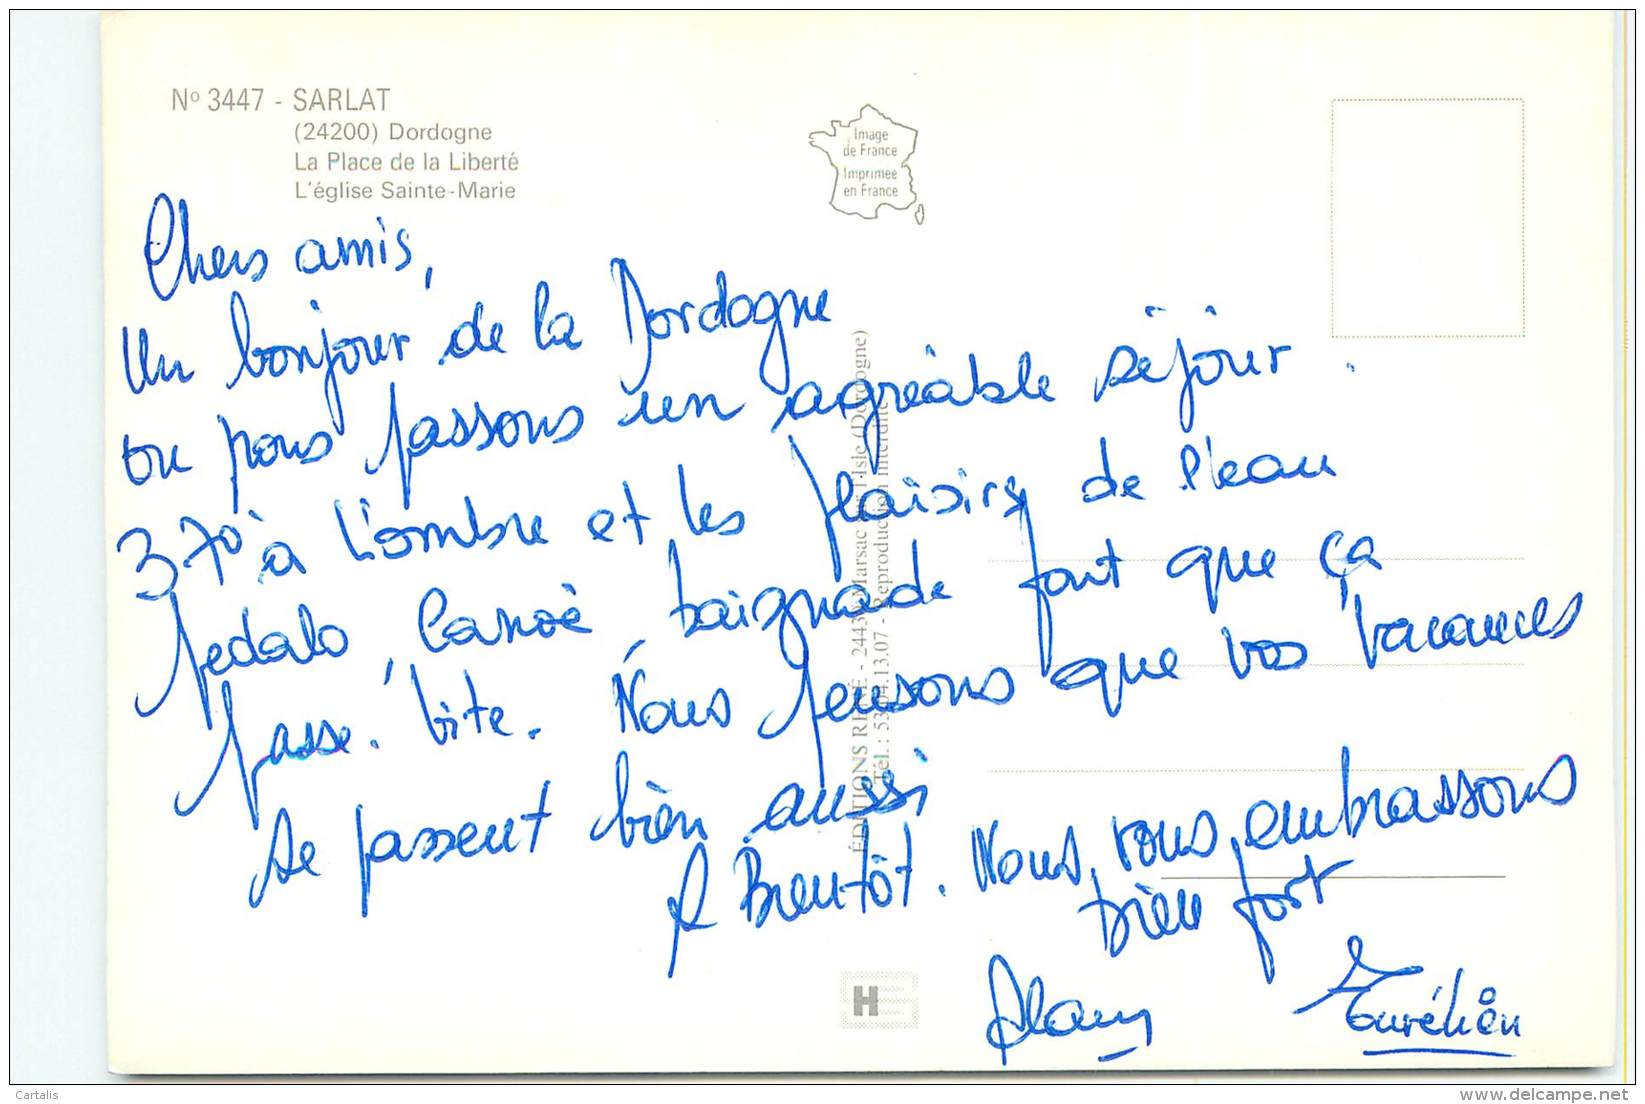 N° 3447 - SARLAT
(24200) Dordogne
La Place de la Liberté
L'église Sainte-Marie
Image
de France
Imprimée
en France
Chers amis,
Un bonjour de la Dordogne
ou nous passons un agréable séjour.
37° à l'ombre et les plaisirs de l'eau
pedalo, canoë, baignade font que ça
passe. vite. Nous pensons que vos vacances
se passent bien aussi
A Bientôt. Nous vous embrassons
bien fort
Alain Aurélien
ÉDITIONS RENÉ - 2443 Marsac sur l'Isle (Dordogne)
Tél. : 53.04.13.07 - Reproduction interdite
H
Cartalis
www.delcampe.net